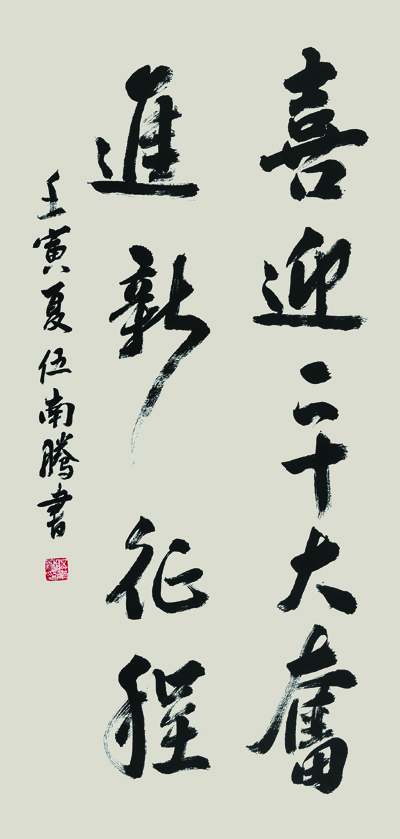 喜迎二十大奮
進新征程
壬寅夏伍南騰書